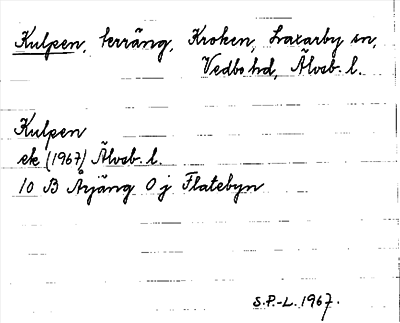 Kulpen, terräng, Kroken, Laxarby sn,
Vedbo hd, Älvsb. l.
Kulpen
ek (1967) Älvsb. l.
10 B Årjäng 0 j Flatebyn
S.P.-L. 1967.